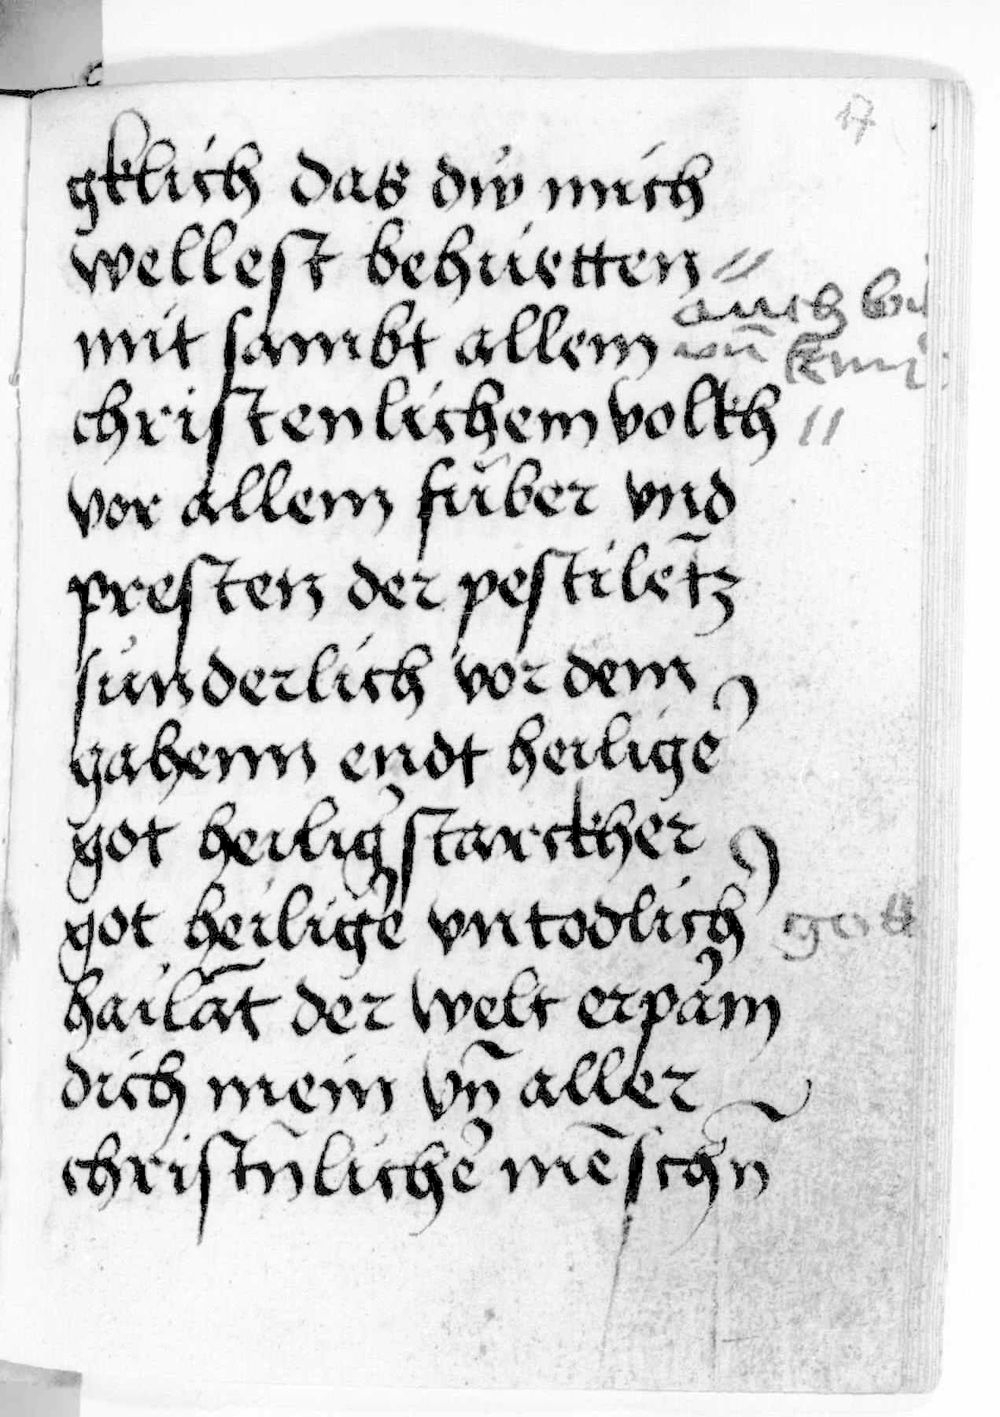 17
gklich das diw mich
wellest behüetten //
auch
mit sambt allem vn̄
christenlichem volkh //
vor allem füber vnd
presten der pestilēcz
sünderlich vor dem
gahenn endt heilige᷑
got heilig᷑ starckher
got heilige᷑ vntodlich᷑ gott
hailāt der welt erpa᷑m
dich mein vn̄ aller
christn̄liche᷑ mēschn̄